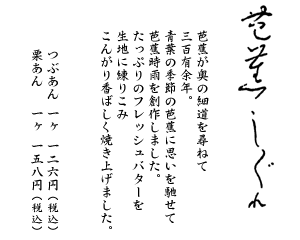 芭蕉しぐれ
芭蕉が奥の細道を尋ねて
三百有余年。
青葉の季節の芭蕉に思いを馳せて
芭蕉時雨を創作しました。
たっぷりのフレッシュバターを
生地に練りこみ
こんがり香ばしく焼き上げました。
つぶあん 一ヶ 一二六円（税込）
栗あん 一ヶ 一五八円（税込）